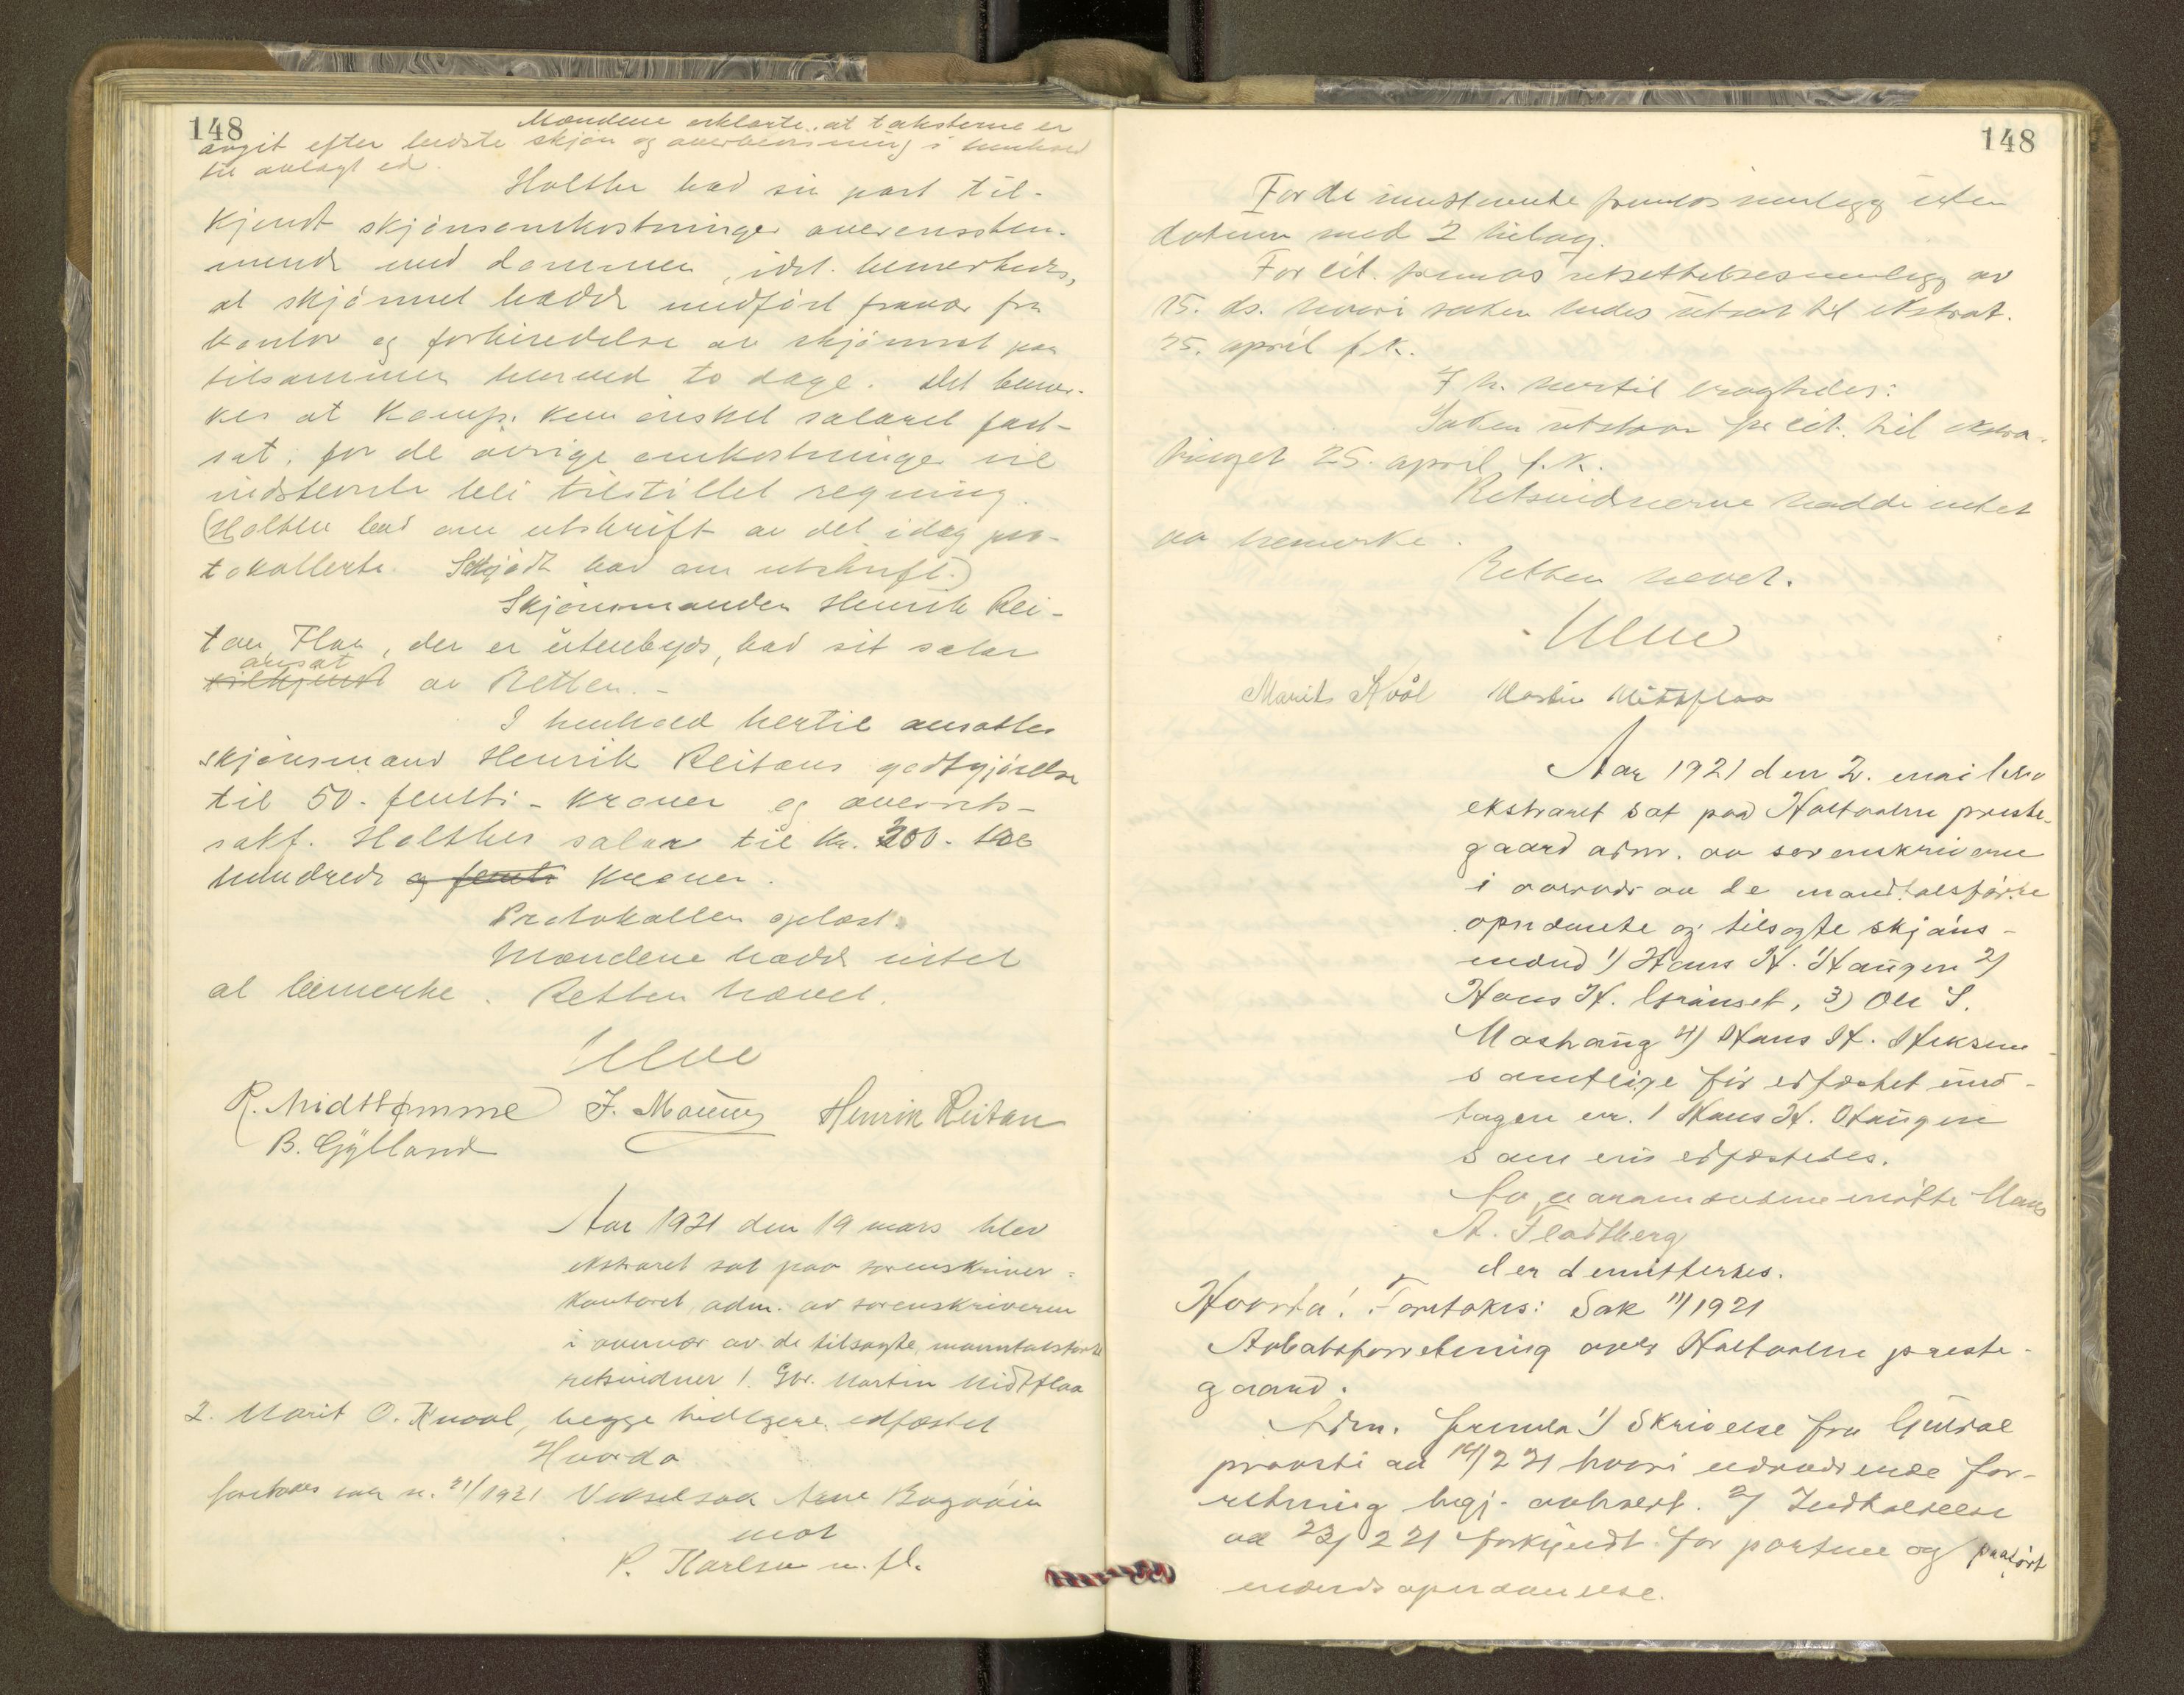 148
Mændene erklærte, at taksterne er
avgit efter bedste skjøn og overbevisning i henhold
til avlagt ed.
Holthe bad sin part til-
kjendt skjønsomkostninger overensstem-
mende med dommen, idet bemerkedes,
at skjønnet hadde medført fravær fra
kontor og forberedelse av skjønnet paa
tilsammen henved to dage. Det bemer-
kes at komp. kun ønsket salæret fast-
sat; for de øvrige omkostninger vil
indstevnte bli tilstillet regning.
(Holthe bad om utskrift av det idag pro-
tokollerte. Schjødt bad om utskrift.)
Skjønsmanden Henrik Rei-
tan, Flaa, der er utenbygds, bad sit salær
ansat
tilkjendt av Retten. -
I henhold hertil ansattes
skjønsmand Henrik Reitans godtgjørelse
til 50 - femti - kroner og overrets-
sakf. Holthes salær til kr. 200 - to
hundrede og femti kroner.
Protokollen oplæst.
Mændene hadde intet
at bemerke. Retten hævet.
R. Midttømme J. Mauug Henrik Reitan
B. Gylland
Aar 1921 den 19 mars blev
ekstraret sat paa sorenskriver-
kontoret adm. av sorenskriveren
i overvær av de tilsagte, manntalsførte
retsvidner 1. Gbr. Martin Midtflaa
2. Marit O. Kvaal, begge tidligere edfæstet
Hvorda
foretokes sak n. 21/1921 Vekselsak Arne Bogøien
mot
P. Karlsen m. fl.
148
For de indstevnte fremlas indlegg uten
datum med 2 bilag.
For cit. fremlas utsettelsesindlegg av
15. ds. hvori saken bedes utsat til ekstrat.
25. april f.k.
I h. hertil eragtedes:
Saken utstaar for cit. til ekstra-
tinget 25. april f.k.
Retsvidnerne hadde intet
aa bemerke.
Retten hævet.
Marit Kvål Martin Midtflaa
Aar 1921 den 2. mai blev
ekstraret sat paa Holtaalen preste-
gaard adm. av sorenskriveren
i overvær av de mandtalsførte
opnævnte og tilsagte skjøns-
mænd 1) Hans H. Haugen 2)
Hans H. Grønset, 3) Ole S.
Moshaug 4) Hans H. Heksem
samtlige før edfæstet und-
tagen nr. 1 Hans H. Haugen
som nu edfæstedes.
Av varamændene møtte Hans
A. Flodtberg
der demitteres.
Hvorda! Foretokes: Sak 11/1921
Aabotsforretning over Holtaalen preste-
gaard.
Adm. fremla 1) Skrivelse fra Guldal
provsti av 14/2 21 hvori nærværende for-
retning begj. avholdt. 2) Indkaldelse
av 23/2 21 forkyndt for partene og paaført
mænds opnævnelse.